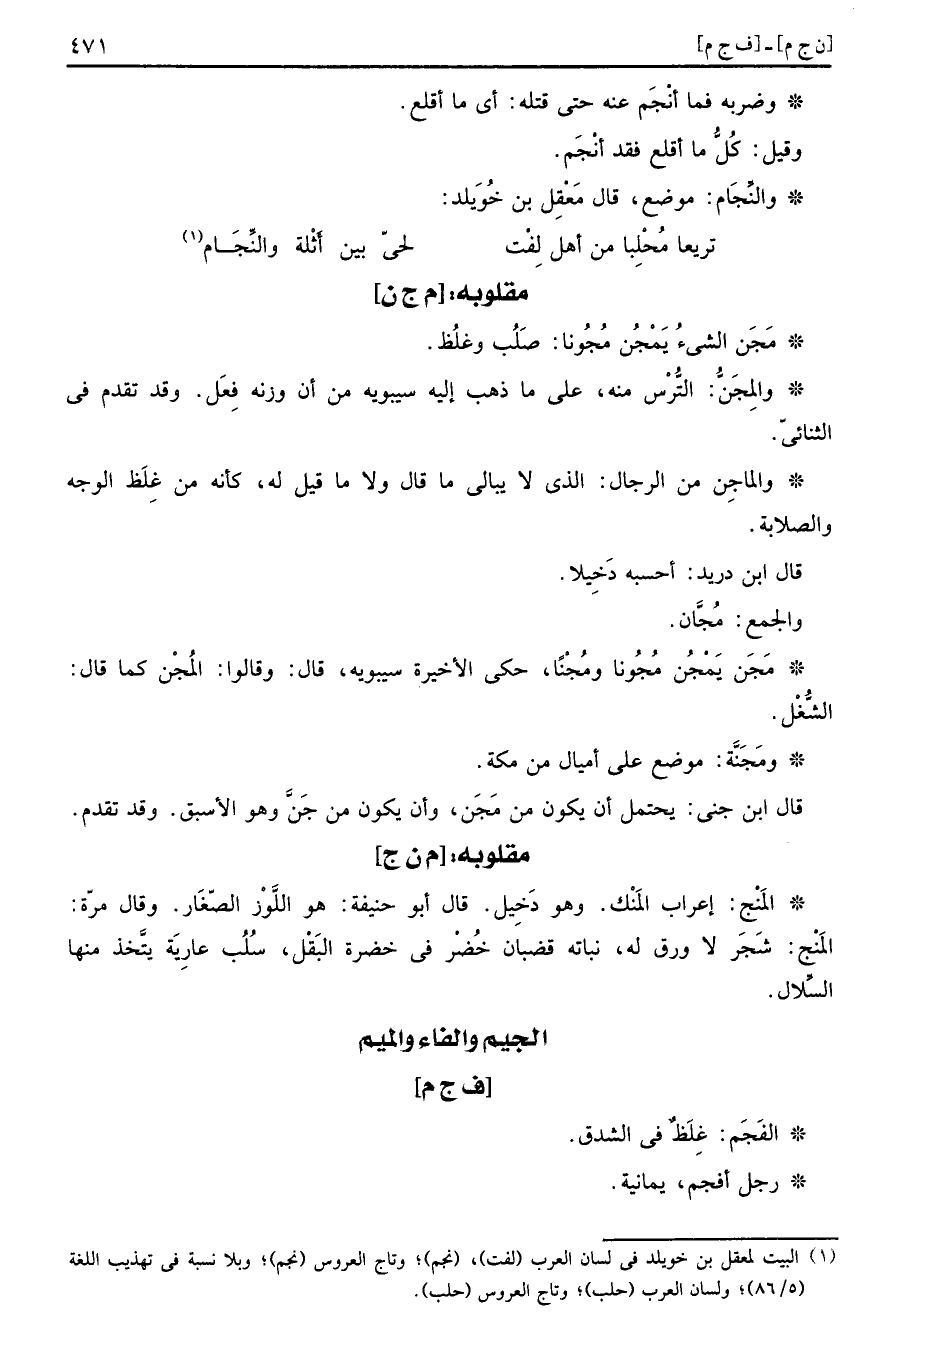 [ن ج م] - [ف ج م] ٤٧١
❊ وضربه فما أنْجَم عنه حتى قتله: أى ما أقلع.
وقيل: كُلُّ ما أقلع فقد أنْجَم.
❊ والنِّجَام: موضع، قال مَعْقِل بن خُوَيلد:
تريعا مُحْلِبا من أهل لِفْت لحىّ بين أَثْلة والنِّجَـام(١)
مقلوبه: [م ج ن]
❊ مَجَن الشىءُ يَمْجُن مُجُونا: صَلُب وغلُظ.
❊ والمِجَنُّ: التُّرْس منه، على ما ذهب إليه سيبويه من أن وزنه فِعَل. وقد تقدم فى
الثنائىّ.
❊ والماجِن من الرجال: الذى لا يبالى ما قال ولا ما قيل له، كأنه من غِلَظ الوجه
والصلابة.
قال ابن دريد: أحسبه دَخِيلا.
والجمع: مُجَّان.
❊ مَجَن يَمْجُن مُجُونا ومُجْنًا، حكى الأخيرة سيبويه، قال: وقالوا: المُجْن كما قال:
الشُّغْل.
❊ ومَجَنَّة: موضع على أميال من مكة.
قال ابن جنى: يحتمل أن يكون من مَجَن، وأن يكون من جَنَّ وهو الأسبق. وقد تقدم.
مقلوبه: [م ن ج]
❊ المَنْج: إعراب المَنْك. وهو دَخِيل. قال أبو حنيفة: هو اللَّوْز الصِّغَار. وقال مرّة:
المَنْج: شَجَر لا ورق له، نباته قضبان خُضْر فى خضرة البَقْل، سُلُب عارِيَة يتَّخذ منها
السِّلال.
الجيم والفاء والميم
[ف ج م]
❊ الفَجَم: غِلَظٌ فى الشدق.
❊ رجل أفجم، يمانية.
(١) البيت لمعقل بن خويلد فى لسان العرب (لفت)، (نجم)؛ وتاج العروس (نجم)؛ وبلا نسبة فى تهذيب اللغة
(٥/ ٨٦)؛ ولسان العرب (حلب)؛ وتاج العروس (حلب).